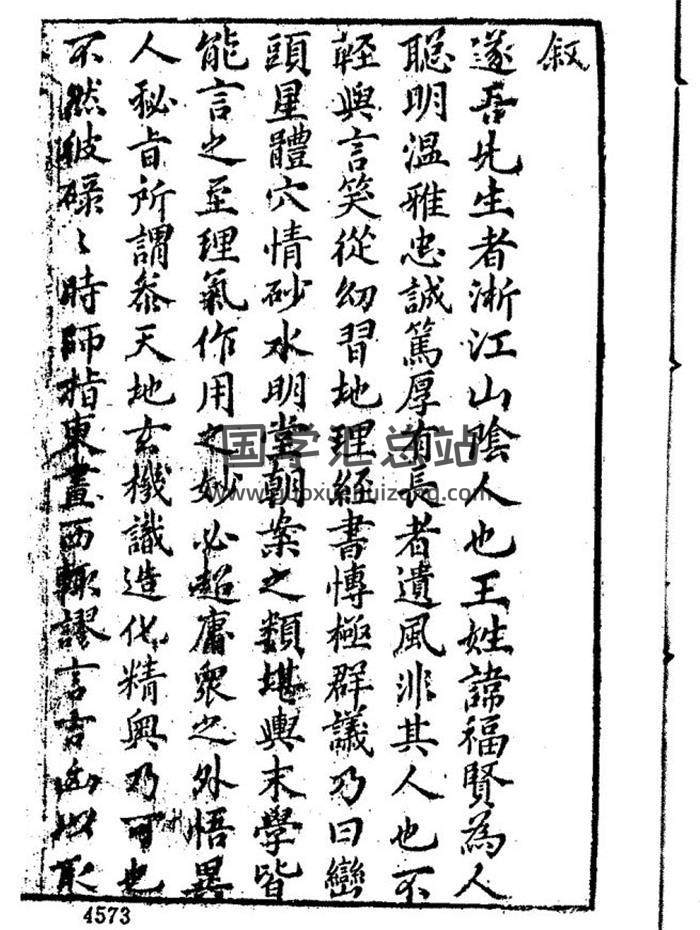 叙
遂吾先生者浙江山陰人也王姓諱福賢為人
聰明溫雅忠誠篤厚有長者遺風非其人也不
輕與言笑從幼習地理經書博極群議乃曰巒
頭星體穴情砂水明堂朝案之類堪輿末學皆
能言之至理氣作用之妙必超庸眾之外悟異
人秘旨所謂叅天地玄機識造化精奥乃可也
不然彼碌〻時師指東畫西輒謬言吉凶以取
国学汇总站
www.guoxuehuizong.com
4573